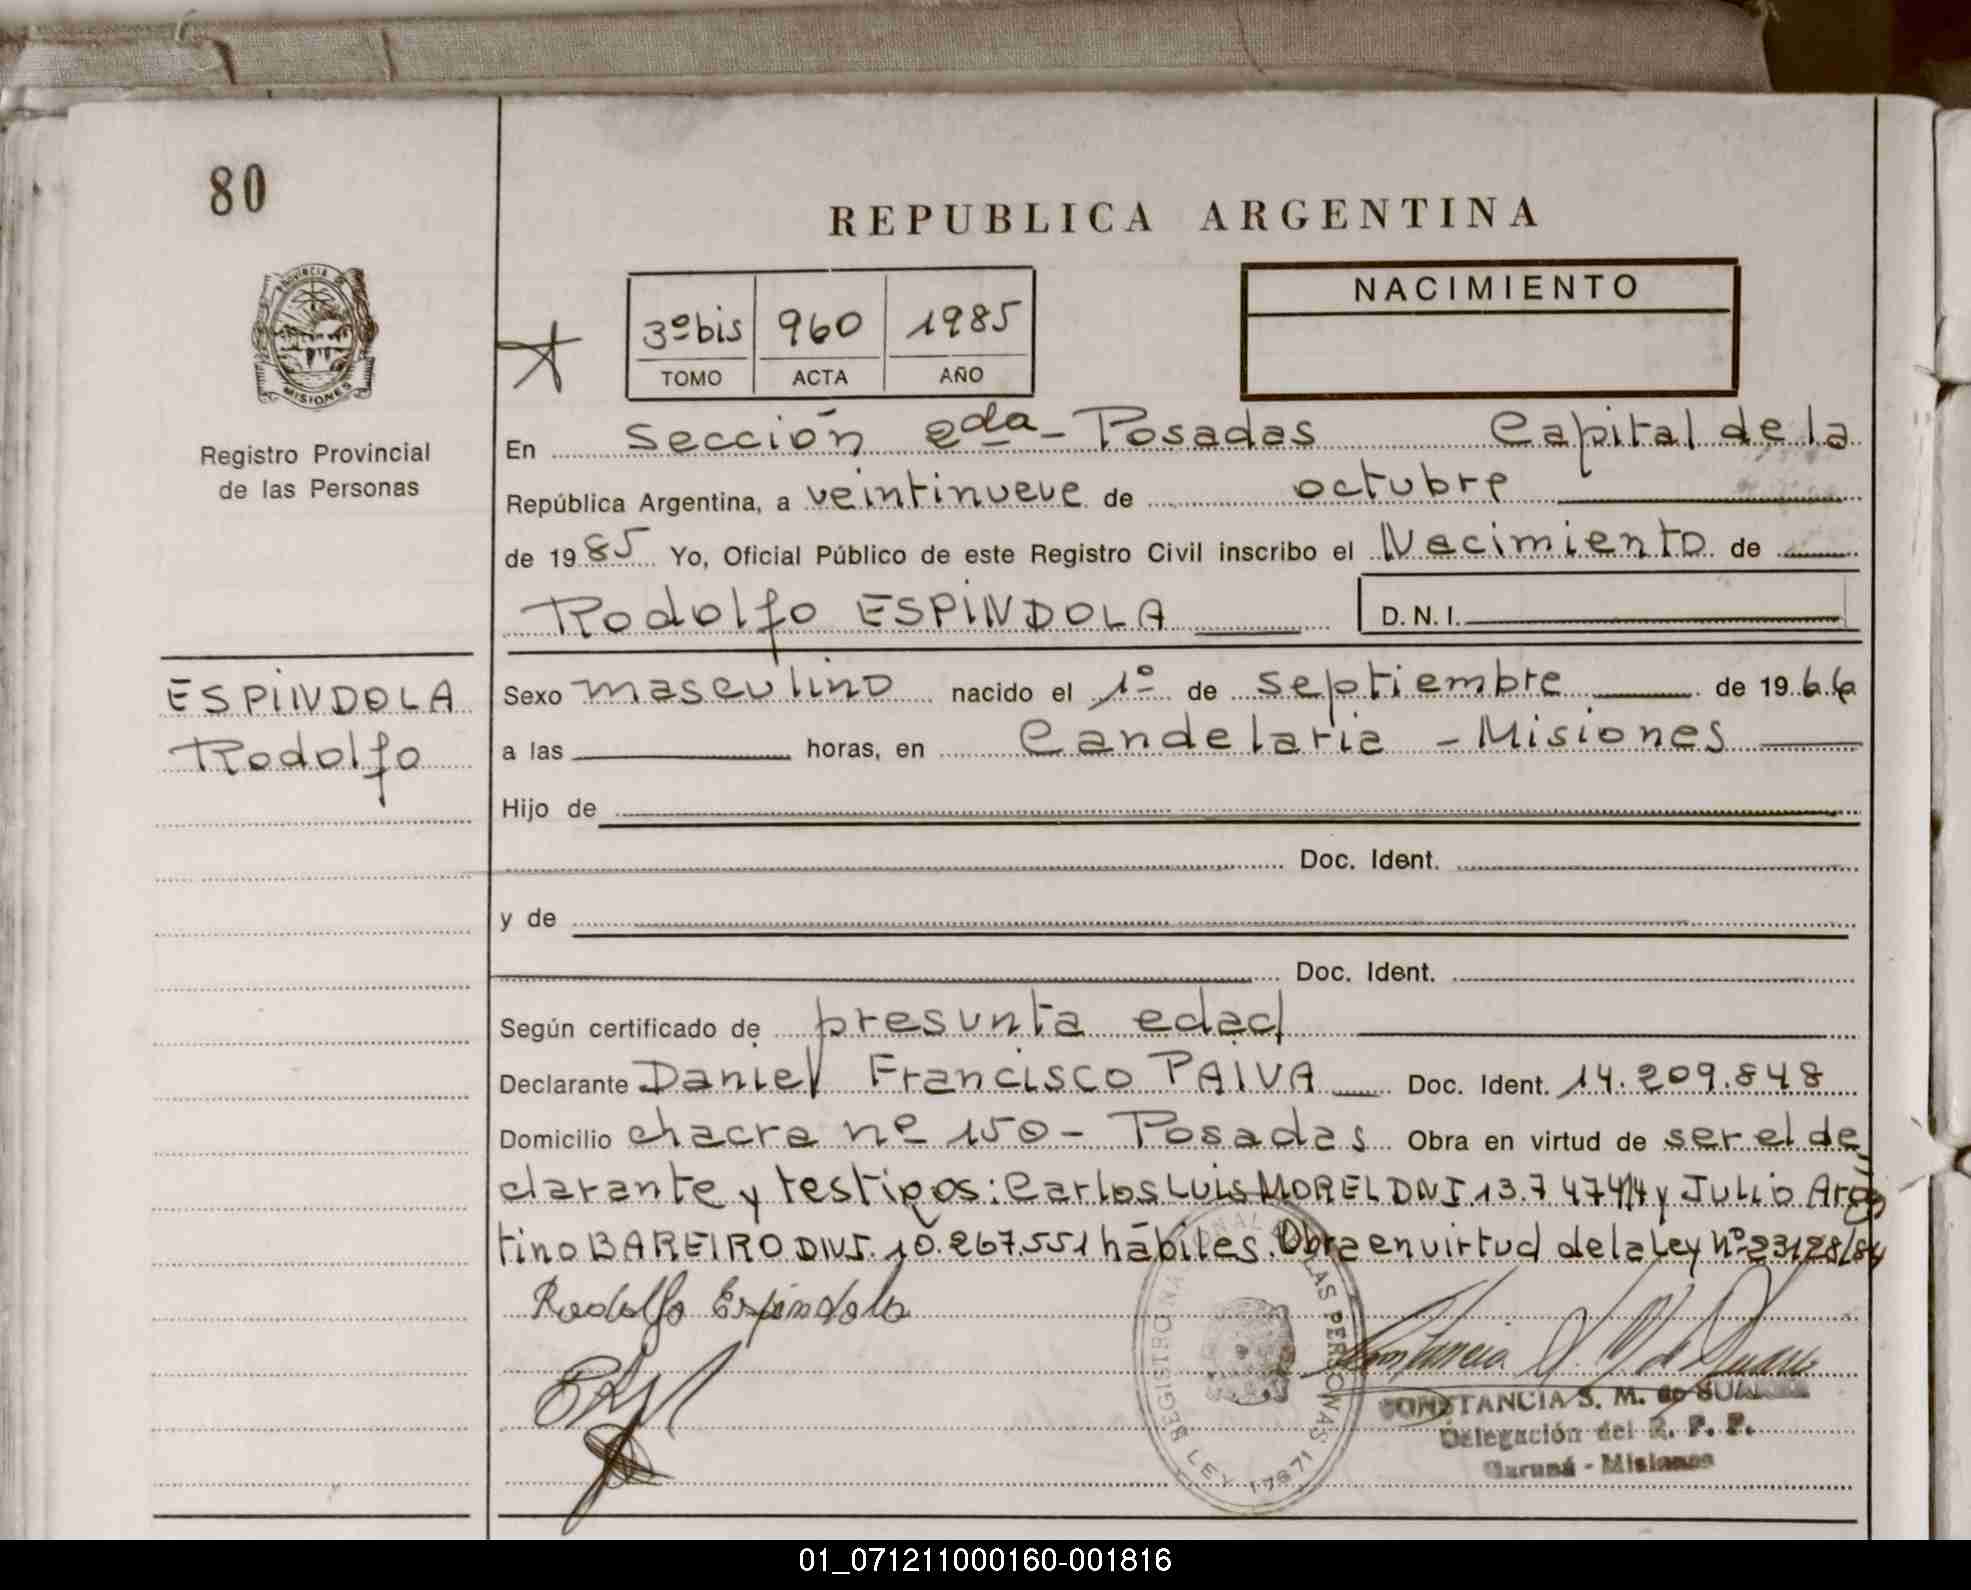 80
REPUBLICA ARGENTINA
PROVINCIA DE
MISIONES
Registro Provincial
de las Personas
3º bis 960 1985
TOMO ACTA AÑO
NACIMIENTO
En Sección 2da - Posadas Capital de la
República Argentina, a veintinueve de octubre
de 1985 Yo, Oficial Público de este Registro Civil inscribo el Nacimiento de
Rodolfo ESPINDOLA D.N.I.
ESPINDOLA
Rodolfo
Sexo masculino nacido el 1º de septiembre de 1966
a las horas, en Candelaria - Misiones
Hijo de
Doc. Ident.
y de
Doc. Ident.
Según certificado de presunta edad
Declarante Daniel Francisco PAIVA Doc. Ident. 14.209.848
Domicilio chacra nº 150 - Posadas Obra en virtud de ser el de
clarante y testigos: Carlos Luis MOREL DNI. 13.7 y Julio Argen
tino BAREIRO DNI. 10.267.551 hábiles. Obra en virtud de la Ley Nº 23128/84
Rodolfo Espindola
REGISTRO NACIONAL DE LAS PERSONAS
LEY 17671
CONSTANCIA S. M. de
Delegación del R. P. P.
Garupá - Misiones
01_071211000160-001816